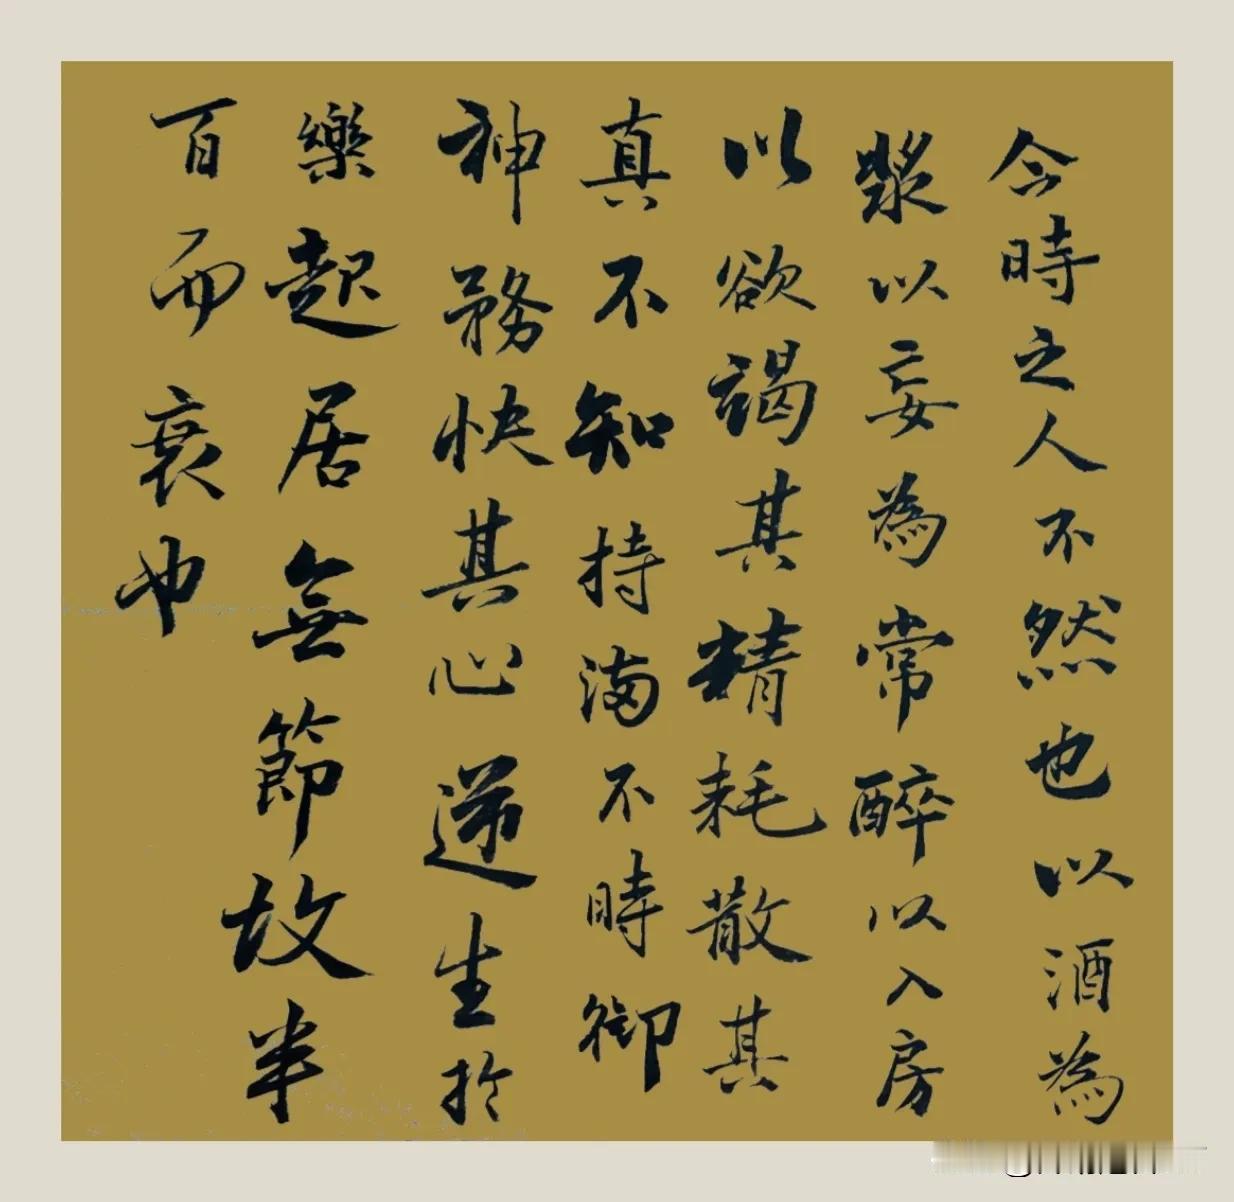 今時之人不然也以酒為
漿以妄為常醉以入房
以欲竭其精耗散其
真不知持滿不時御
神務快其心递生於
樂起居無節故半
百而衰也